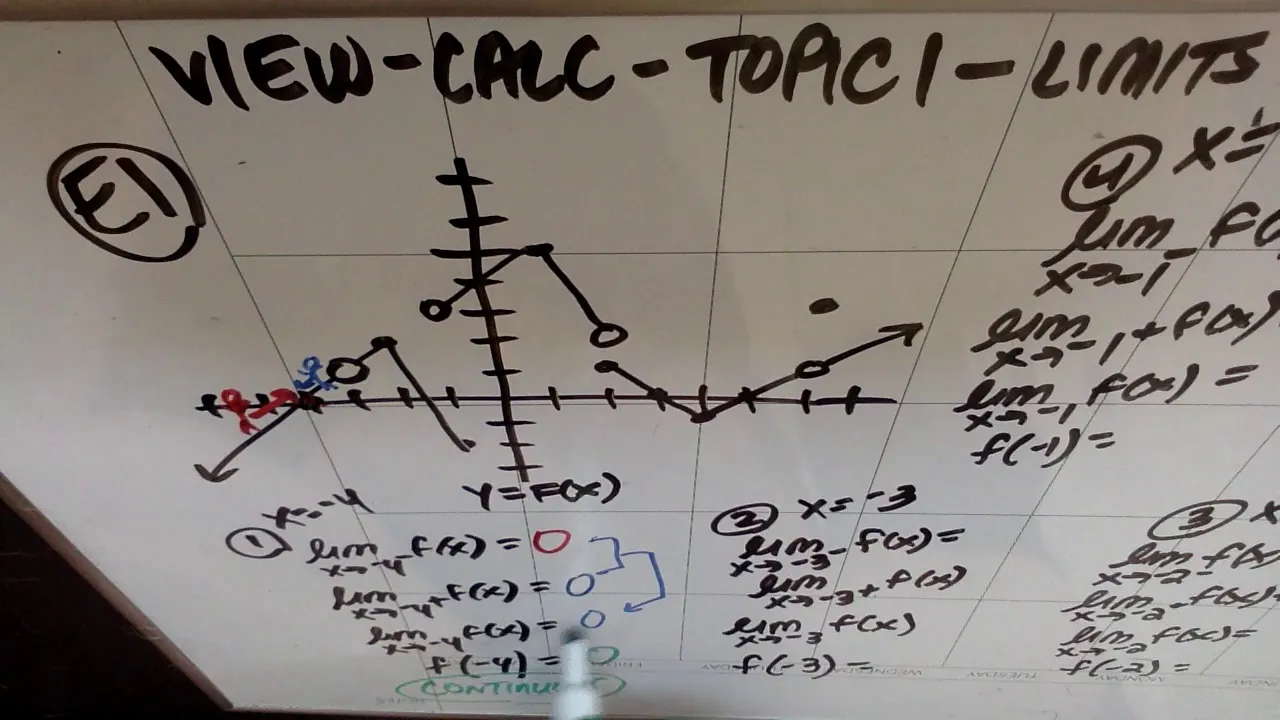 VIEW-CALC-TOPIC1-LIMITS
E1
Y=F(X)
① X=-4
lim x→-4⁻ f(x) = 0
lim x→-4⁺ f(x) = 0
lim x→-4 f(x) = 0
f(-4) = 0
CONTINUOUS
② X=-3
lim x→-3⁻ f(x) =
lim x→-3⁺ f(x)
lim x→-3 f(x)
f(-3) =
③ X
lim x→-2⁻ f(x)
lim x→-2⁺ f(x)
lim x→-2 f(x)=
f(-2) =
④ X=
lim x→-1⁻ f(
lim x→-1⁺ f(x)
lim x→-1 f(x) =
f(-1) =